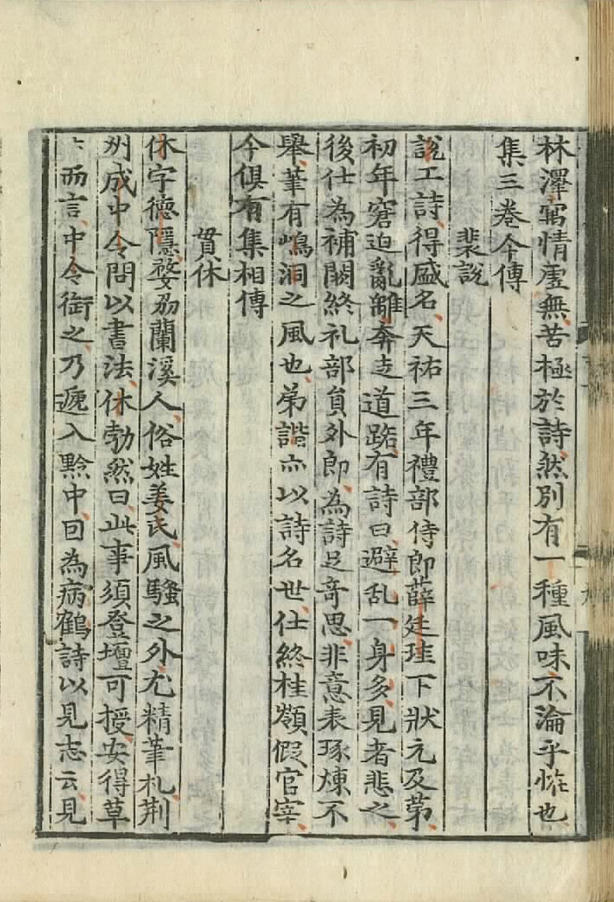 林澤寫情虛無苦極於詩然別有一種風味不淪乎恠也
集三卷今傳
裴說
說工詩得盛名天祐三年禮部侍郎薛廷珪下狀元及第
初年窘迫亂離奔走道路有詩曰避乱一身多見者悲之
後仕為補闕終礼部員外郎為詩足奇思非意表琢煉不
舉筆有嶋洞之風也弟諧亦以詩名世仕終桂嶺假官宰
今俱有集相傳
貫休
休字德隱婺州蘭溪人俗姓姜氏風騷之外尤精筆札荆
州成中令問以書法休勃然曰此事須登壇可授安得草
草而言中令銜之乃遞入黔中因為病鶴詩以見志云見